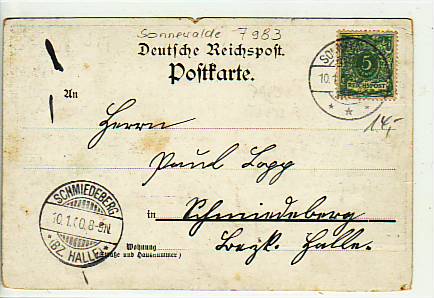 Sonnewalde 7983
Deutsche Reichspost.
Postkarte.
5
REICHSPOST
10.1.
An
Herrn
Paul Lopp
SCHMIEDEBERG
10.1.00.8-9N
*(BZ. HALLE)*
in Schmiedeberg
Bezk. Halle.
Wohnung
(Straße und Hausnummer)
14,-